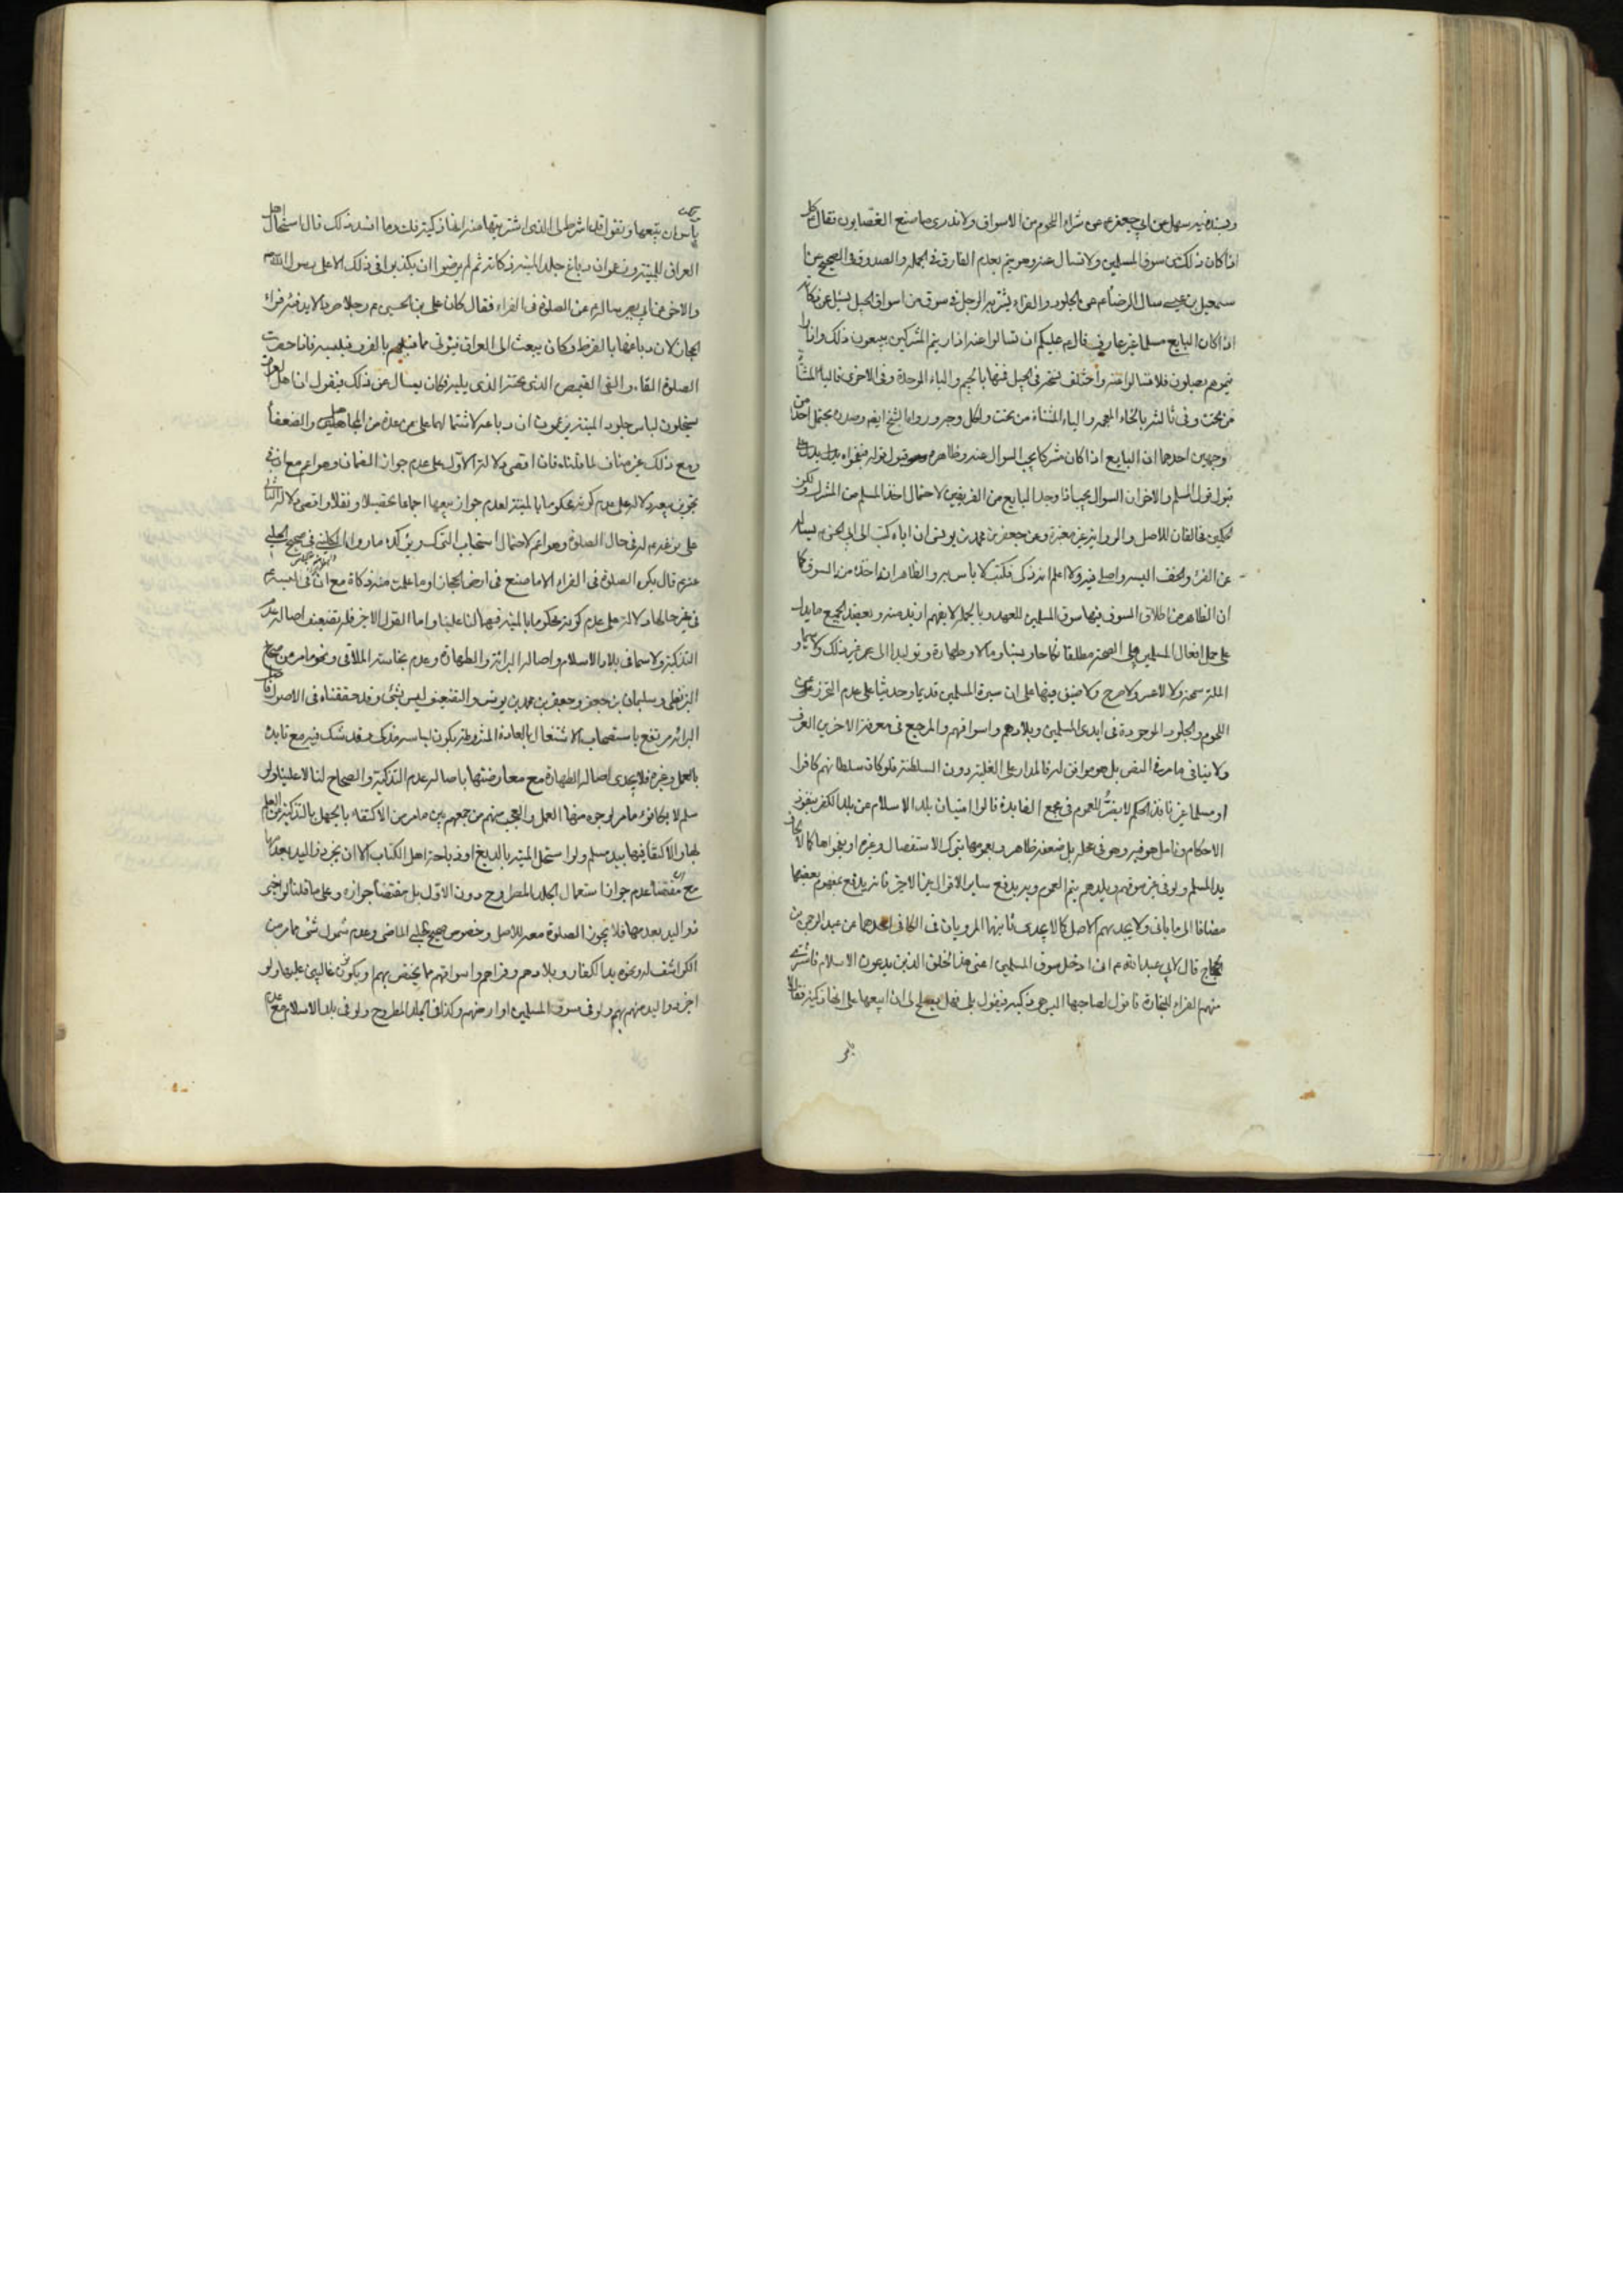 وبسند فيه سهل عن ابي جعفر ع عن شراء اللحوم من الاسواق ولا ندري ما صنع القصابون فقال كل
اذا كان ذلك في سوق المسلمين ولا تسأل عنه وهو يتم بعدم الفارق في الجملة والصدوق في الصحيح عن ا
سمعيل بن عيسى سأل الرضا ع عن الجلود والفراء يشتريه الرجل في سوق من اسواق الجبل يسئل عن ذكاته
اذا كان البايع مسلما غير عارف قال ع عليكم ان تسالوا عنه اذا رايتم المشركين يبيعون ذلك واذا را
يتموهم يصلون فلا تسالوا عنه واختلف نسخه في الجبل ففيها بالجيم والباء الموحدة وفي الاخرى فالياء المثناة
من تحت وفي ثالثه بالخاء المعجمه والياء المثناة من تحت ولكل وجه ورواها الشيخ ايضه وصدره يحتمل احد من
وجهين احدهما ان البايع اذا كان مشركا يجب السوال عنه وظاهره قبول قوله
قبول قول المسلم والاخر ان السوال يجب اذا وجد البايع من الفريقين لاحتمال اخذ المسلم من المشرك ولكن
الحكمين مخالفان للاصل والرواية غير معتبرة وعن جعفر بن محمد بن يونس ان اباه كتب الى ابي الحسن ع يساله
عن الفرو والخف البسه واصلي فيه ولا اعلم انه ذكي فكتب لا باس به والظاهر ان اخذه من السوق كا
ان الظاهر من اطلاق السوق فيها سوق المسلمين للعهد وبالجملة لا يفهم ازيد منه ويعضد الجميع ما يدل
على حمل افعال المسلمين على الصحة مطلقا نكاحا وبيتا ومالا وطهارة وتوليدا الى غير ذلك ولا سيما و
الملة سمحة ولا عسر ولا حرج ولا ضيق فيها على ان سيرة المسلمين قديما وحديثا على عدم التحرز عن
اللحوم والجلود الموجودة في ايدي المسلمين وبلادهم واسواقهم والمرجع في معرفة الاخرين العرف
ولا ينافي ما مر في النص بل هو موافق له فالمدار على الغلبة دون السلطنة فلو كان سلطانهم كافرا
او مسلما غير نافذ الحكم لا يضر للعموم في مجمع الفايدة قالوا امتياز بلد الاسلام عن بلد الكفر بنفوذ
الاحكام وتامل هو فيه وهو في محله بل ضعفه ظاهر وبعمومها بترك الاستفصال وغيره او بفحواها كالا
يد المسلم ولو في غير سوقهم وبلدهم يتم العموم وبه يدفع ساير الاقوال غير الاخير فانه يدفع بمفهوم بعضها
مضافا الى ما ياتي ولا يجديهم الاصل كالا يجدي ثانيها المرويان في الكافي احدهما عن عبد الرحمن بن
الحجاج قال لابي عبد الله ع اني ادخل سوق المسلمين اعني هذا الخلق الذين يدعون الاسلام فاشتري
منهم الفراء للتجارة فاقول لصاحبها اليس هي ذكية فيقول بلى فهل يصلح لي ان ابيعها على انها ذكية فقال لا
باس ان تبيعها وتقول قد شرط لي الذي اشتريتها منه انها ذكية قلت وما افسد ذلك قال استحلال اهل
العراق للميتة وزعموا ان دباغ جلد الميتة ذكاته ثم لم يرضوا ان يكذبوا في ذلك الا على رسول الله ص
والاخر عن ابي بصير سالته عن الصلوة في الفراء فقال كان علي بن الحسين ع رجلا صردا لا يدفئه فراء
الحجاز لان دباغها بالقرظ وكان يبعث الى العراق فيؤتى مما قبلهم بالفرو فيلبسه فاذا حضرت
الصلوة القاه والقى القميص الذي تحته الذي يليه فكان يسال عن ذلك فيقول ان اهل العراق
يستحلون لباس جلود الميتة ويزعمون ان دباغه لاشتمالهما على من المجاهيل والضعفاء
ومع ذلك غير مناف لما قلناه فان اقصى دلالة الاول على عدم جواز الضمان وهو اعم مع ان في
تجويز بيعه دلالة على عدم كونه محكوما بالميتة لعدم جواز بيعها اجماعا تحصيلا ونقلا واقصى دلالة الثاني
على نزعه له في حال الصلوة وهو اعم لاحتمال استحباب التحرز يؤكده ما رواه الكافي في صحيح الحلبي
عنه ع قال يكره الصلوة في الفراء الا ما صنع في ارض الحجاز او ما علمت منه ذكاة مع ان في لبسه ع
في غير حالها دلالة على عدم كونه محكوما بالميتة فيهما لنا علينا واما القول الاخير فله تضعيف اصالة عدم
التذكية ولا سيما في بلاد الاسلام واصالة البرائة والطهارة وعدم نجاسة الملاقي ونحو ما مر من صحاح
البزنطي وسليمان بن جعفر وجعفر بن محمد بن يونس والتضعيف ليس بشئ وقد حققناه في الاصول واصل
البرائة مرتفع باستصحاب الاشتغال بالعبادة المشروطة بكون لباسه مذكى وقد شك فيه مع تاييده
بالعمل وغيره فلا يجدي اصالة الطهارة مع معارضتها باصالة عدم التذكية والصحاح لنا لا علينا ولو
سلم لا يكافؤ ما مر لوجوه منها العمل والعجب منهم من جمعهم بين ما مر من الاكتفاء بالجهل بالتذكية من العلم
بها والاكتفاء فيها بيد مسلم ولو استحل الميتة بالدبغ او ذباحة اهل الكتاب الا ان يجرد ذو اليد بعدمها
مع ان مقتضاه عدم جواز استعمال الجلد المطروح دون الاول بل مقتضاه جوازه وعلى ما قلناه لو اخبر
ذو اليد بعدمها فلا يجوز الصلوة معه للاصل وخصوص صحيح الحلبي الماضي وعدم شمول شئ مما مر من
الكواشف له ونحوه يد الكفار وبلادهم وقراهم واسواقهم مما يختص بهم او يكونون غالبين عليها ولو
اخبر ذو اليد منهم بهم ولو في سوق المسلمين او ارضهم وكذا في الجلد المطروح ولو في بلد الاسلام مع عدم